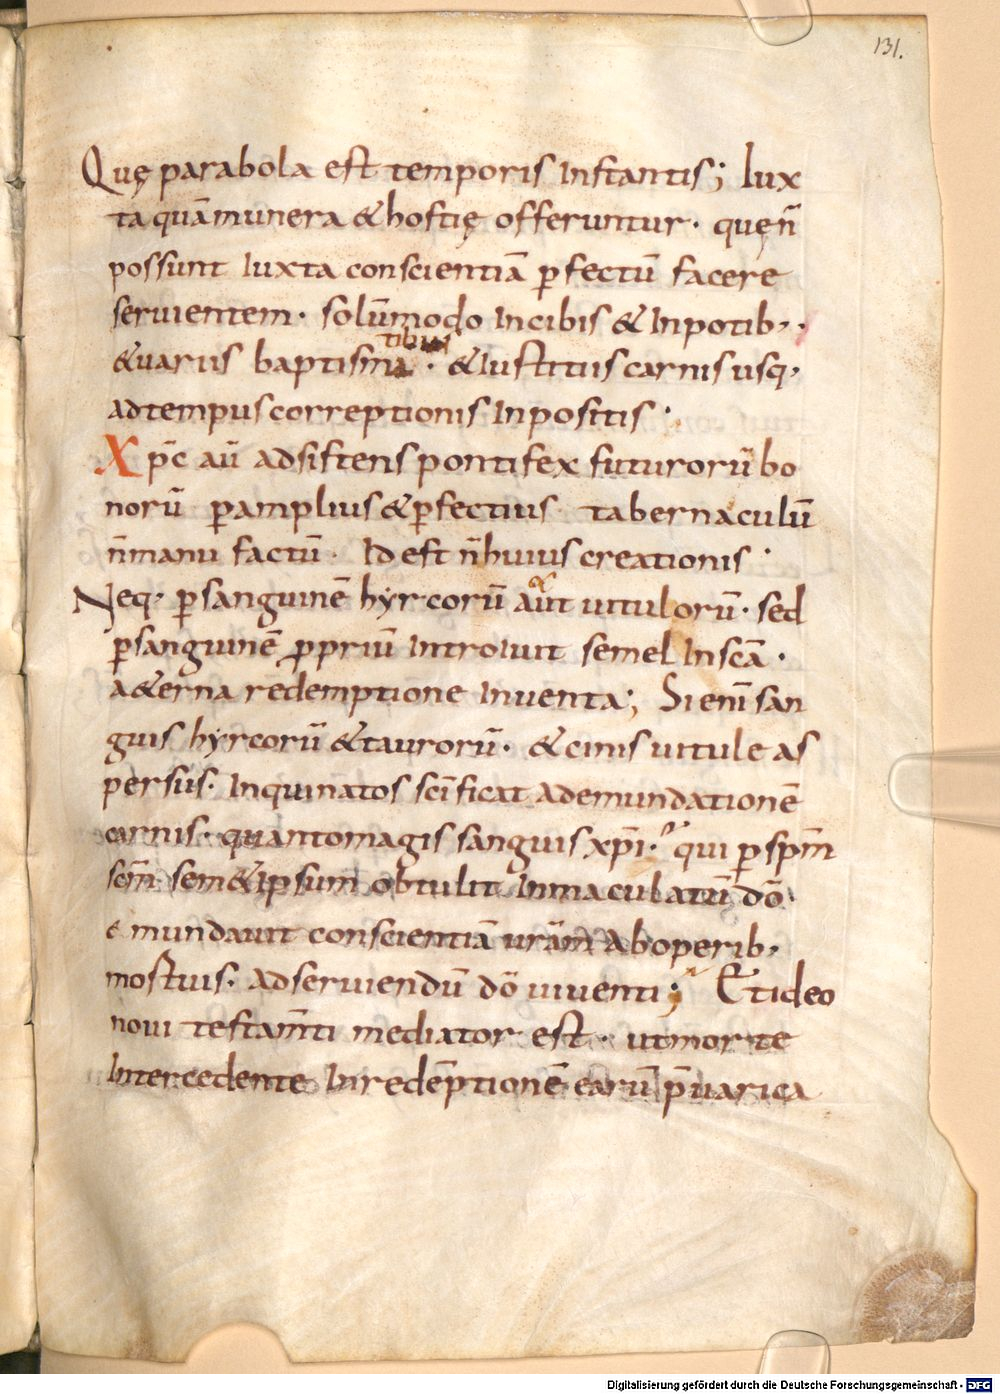 131.
Quę parabola est temporis Instantis; Iux
ta quā munera & hostię offeruntur. quę n̄
possunt Iuxta conscientiā ꝑfectū facere
seruientem. solūmodo Incibis & Inpotib;.
tibus
& uariis baptisma. & Iustitiis carnis usq;
ad tempus correptionis Inpositis.
Xp̄c aū adsistens pontifex futurorū bo
norū ꝑ amplius & ꝑfectius tabernaculū
n̄ manu factū. Id est n̄ huius creationis.
Neq; ꝑ sanguinē hyrcorū aut uitulorū. sed
ꝑ sanguinē ꝓpriū Introiuit semel In scā.
a&erna redemptione Inuenta; Si enī san
guis hyrcorū & taurorū. & cinis uitule as
persus. Inquinatos scīficat ad emundationē
carnis. quanto magis sanguis xp̄i. qui ꝑ sp̄m
scm̄ sem&ipsum obtulit Inmaculatū dō.
emundauit conscientiā urām ab operib;
mostuis. ad seruiendū dō uiuenti; Et ideo
noui testam̄ti mediator est. ut morte
Intercedente In redēptionē earū p̄uarica
Digitalisierung gefördert durch die Deutsche Forschungsgemeinschaft - DFG